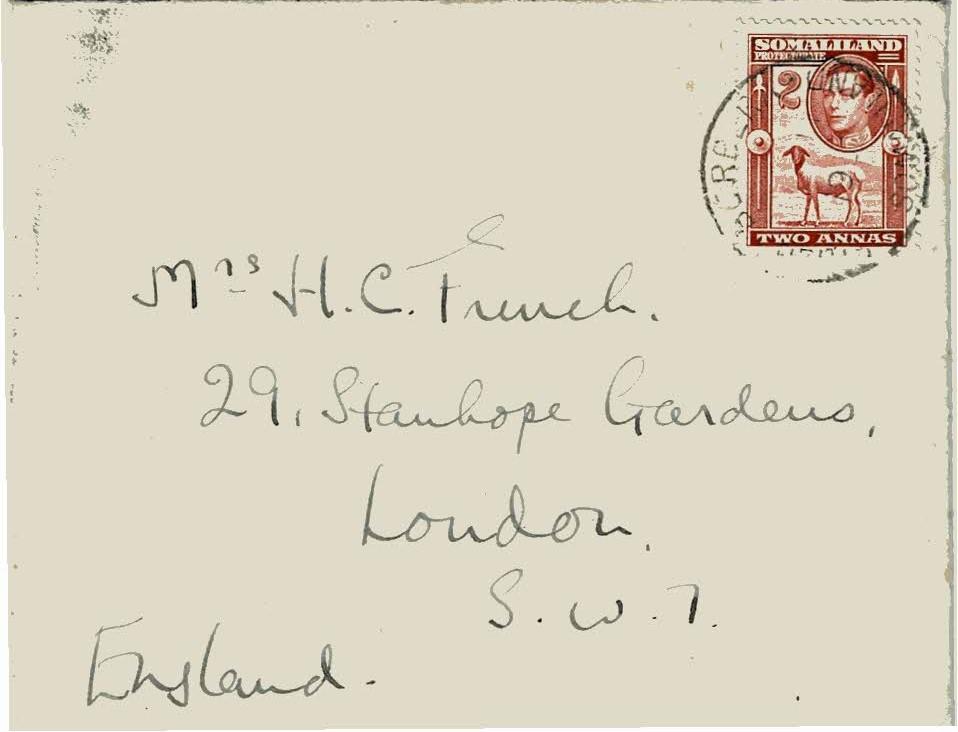 SOMALILAND
PROTECTORATE
2
TWO ANNAS
BERBERA
Mrs H. C. French.
29, Stanhope Gardens,
London.
S. W. 7.
England.